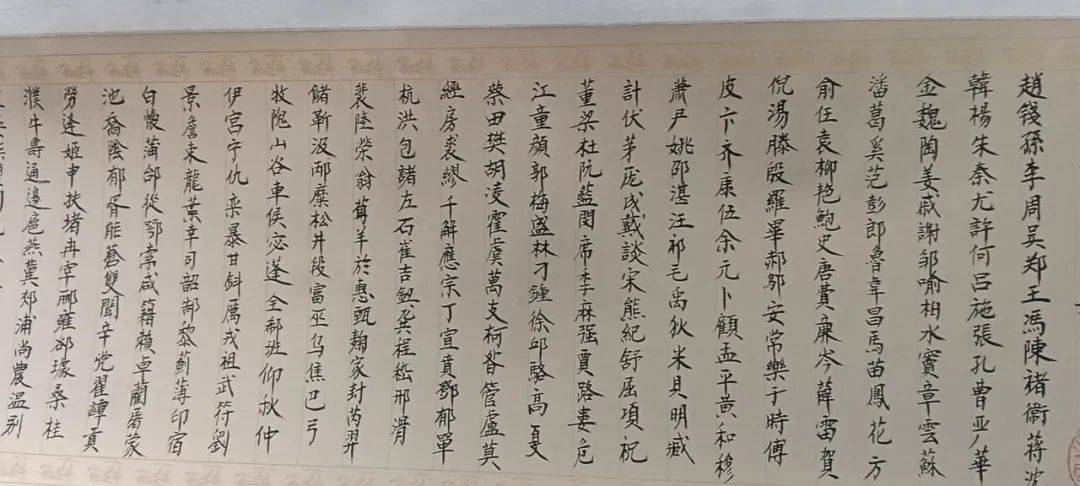 趙錢孫李周吳郑王馮陳褚衞蒋沈
韓楊朱秦尤許何吕施張孔曹严華
金魏陶姜戚謝邹喻柏水竇章雲蘇
潘葛奚范彭郎魯韋昌馬苗鳳花方
俞任袁柳艳鮑史唐費廉岑薛雷賀
倪湯滕殷羅畢郝鄔安常樂于時傅
皮卞齐康伍余元卜顧孟平黄和穆
蕭尹姚邵湛汪祁毛禹狄米貝明臧
計伏茅庞成戴談宋熊紀舒屈項祝
董梁杜阮藍閔席季麻强賈路婁危
江童顔郭梅盛林刁鍾徐邱駱高夏
蔡田樊胡凌霍虞萬支柯昝管盧莫
經房裘繆千解應宗丁宣賁鄧郁單
杭洪包諸左石崔吉鈕龚程嵇邢滑
裴陸榮翁荀羊於惠甄麴家封芮羿
儲靳汲邴糜松井段富巫烏焦巴弓
牧隗山谷車侯宓蓬全郗班仰秋仲
伊宫宁仇栾暴甘斜厲戎祖武符劉
景詹束龍葉幸司韶郜黎薊薄印宿
白懷蒲邰從鄂索咸籍賴卓藺屠蒙
池喬陰郁胥能蒼雙聞莘党翟譚貢
勞逄姬申扶堵冉宰郦雍郤璩桑桂
濮牛壽通邊扈燕冀郏浦尚農温别